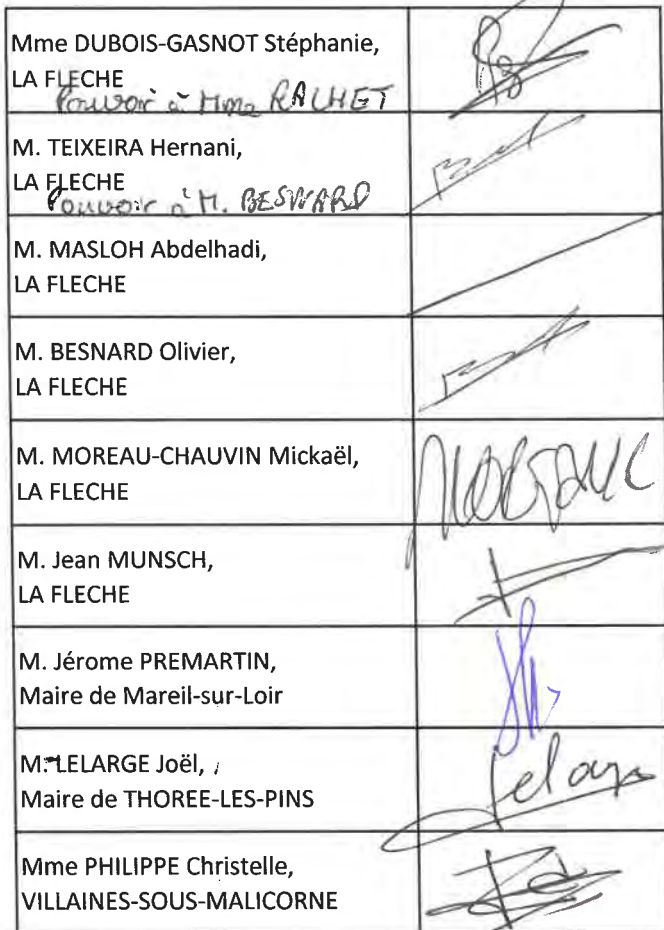 Mme DUBOIS-GASNOT Stéphanie,
LA FLECHE
Pouvoir à Mme RACHET
M. TEIXEIRA Hernani,
LA FLECHE
Pouvoir à M. BESNARD
M. MASLOH Abdelhadi,
LA FLECHE
M. BESNARD Olivier,
LA FLECHE
M. MOREAU-CHAUVIN Mickaël,
LA FLECHE
M. Jean MUNSCH,
LA FLECHE
M. Jérome PREMARTIN,
Maire de Mareil-sur-Loir
M. LELARGE Joël,
Maire de THOREE-LES-PINS
Mme PHILIPPE Christelle,
VILLAINES-SOUS-MALICORNE